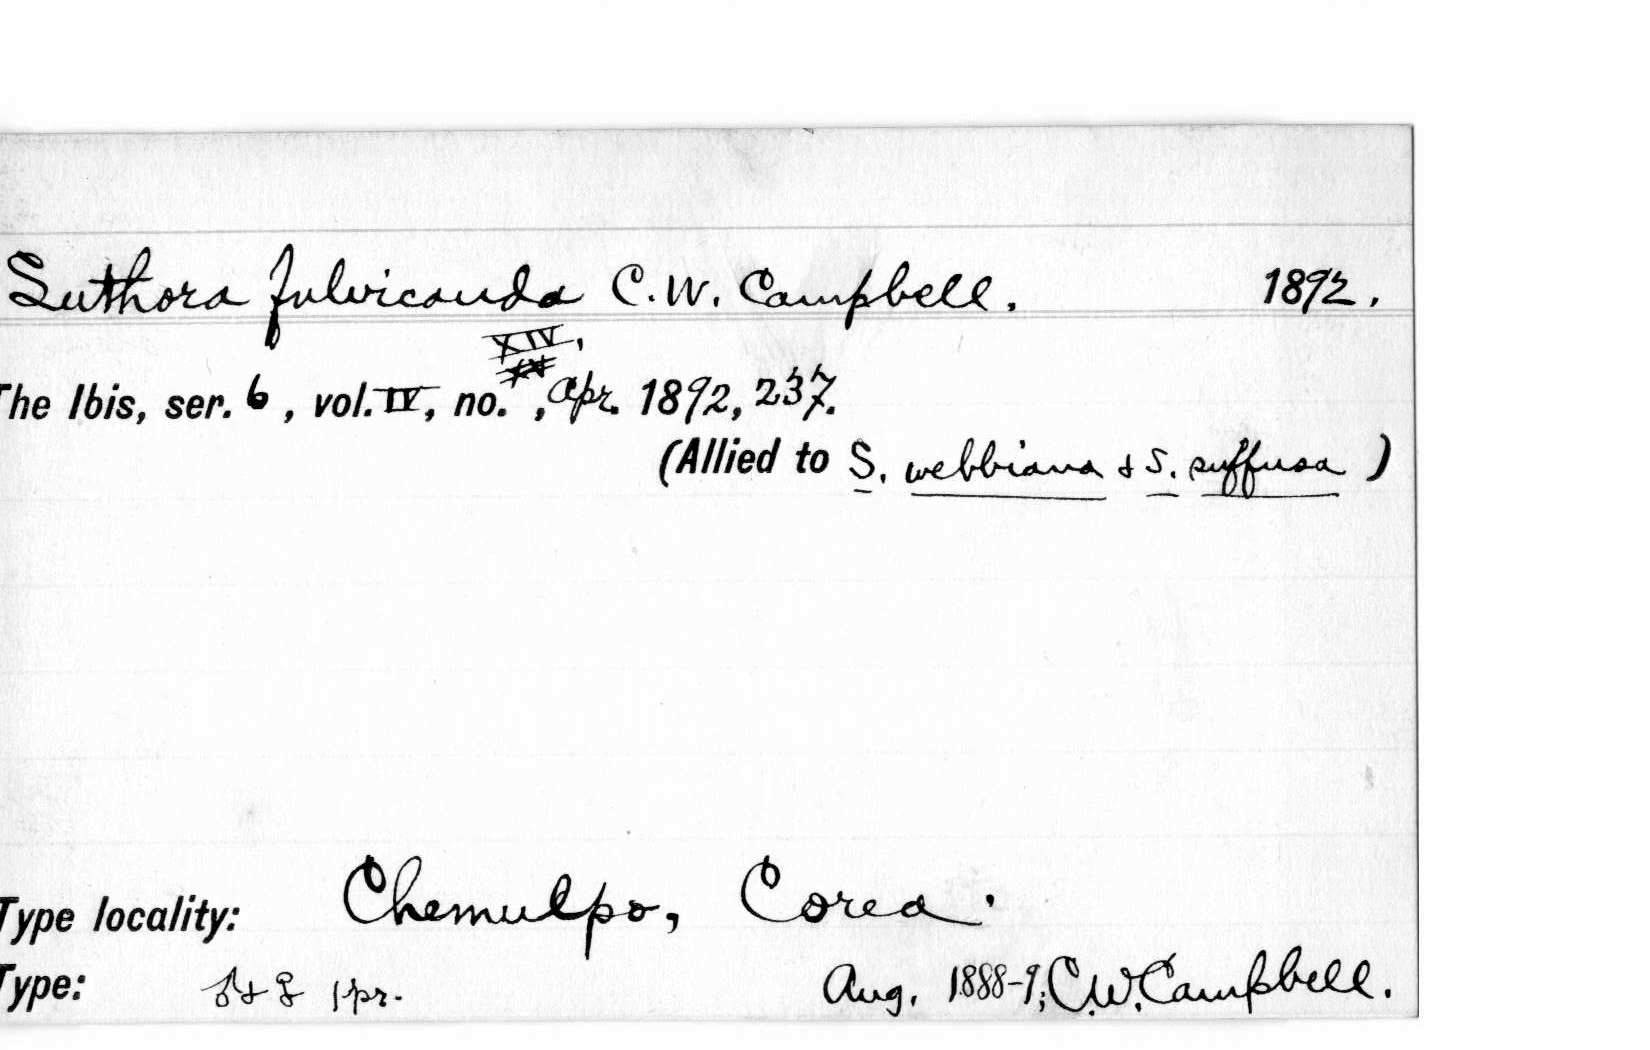 Suthora fulvicauda C.W. Campbell. 1892.
XIV,
The Ibis, ser. 6, vol. IV, no. , Apr. 1892, 237.
(Allied to S. webbiana & S. suffusa)
Type locality: Chemulpo, Corea.
Type: ♂ & ♀ 1 pr. Aug. 1888-9; C.W. Campbell.